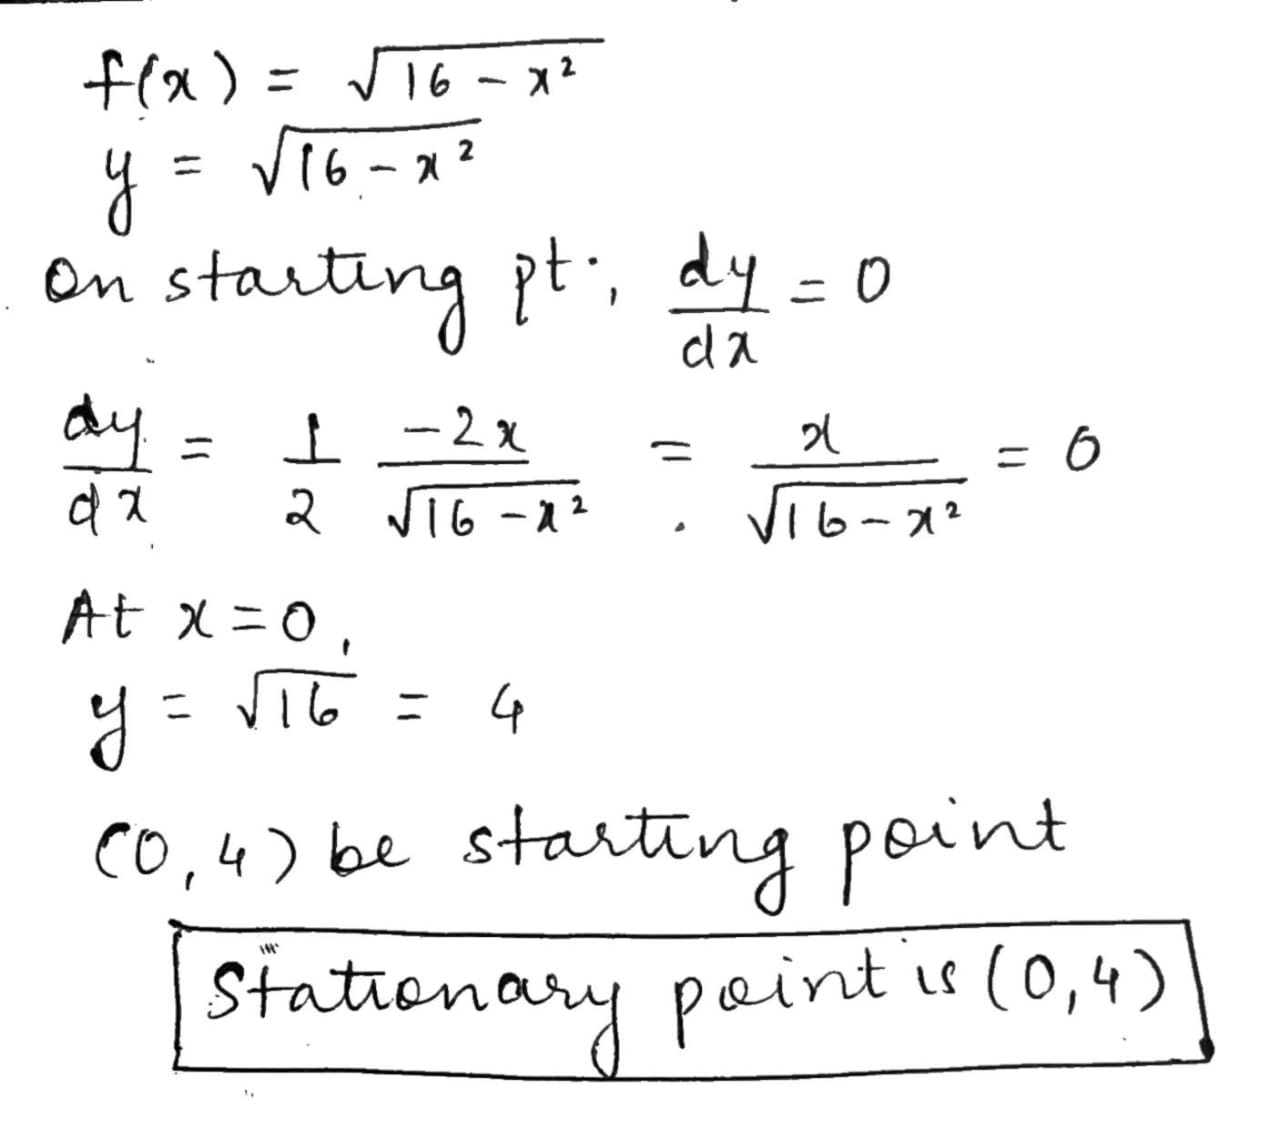 f(x) = √(16 - x²)
y = √(16 - x²)
On starting pt., dy/dx = 0
dy/dx = 1/2 -2x/√(16 - x²) = x/√(16 - x²) = 0
At x = 0,
y = √16 = 4
(0, 4) be starting point
Stationary point is (0, 4)